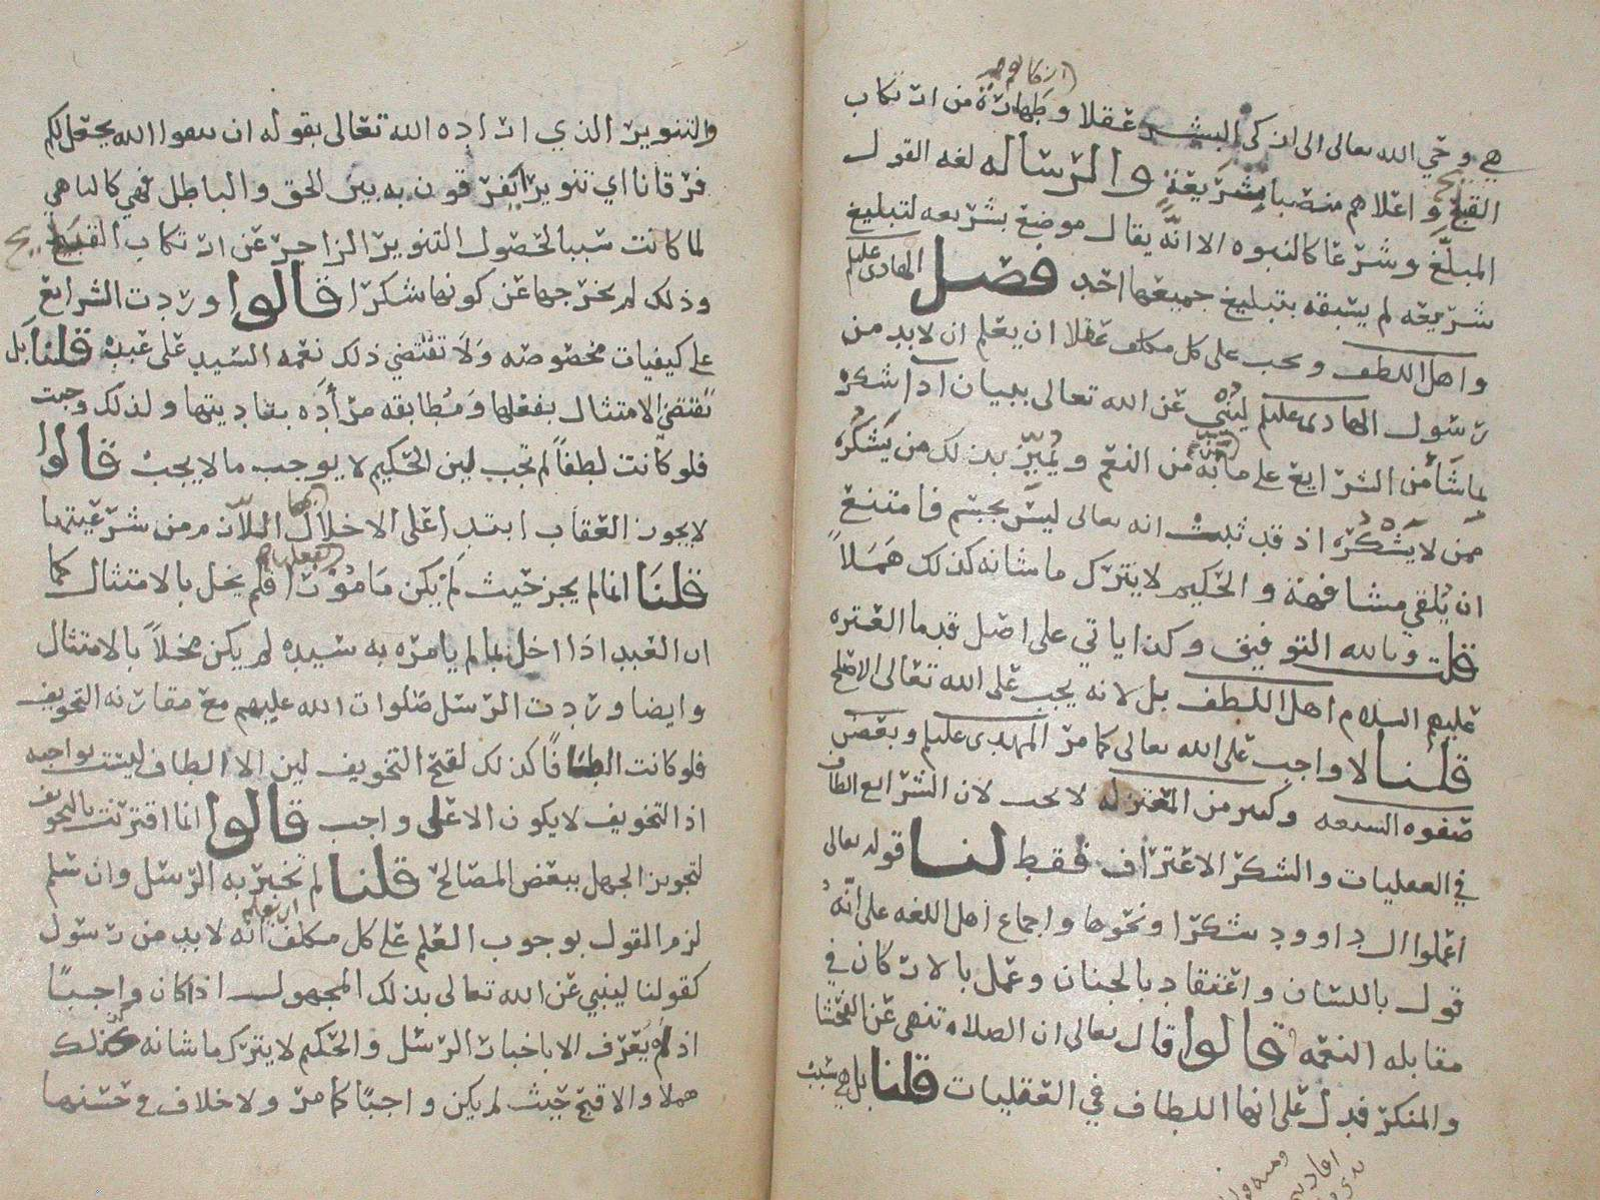 هي وحي الله تعالى الى ازكى البشر عقلا وطهارة من ارتكاب
القبيح واعلاهم منصبا بشريعة والرسالة لغه القول
المبلّغ وشرعا كالنبوه الا انّه يقال موضع بشريعه لتبليغ
شريعه لم يسبقه بتبليغ جميعها احد فصل الهادي عليلم
واهل اللطف ويجب على كل مكلف عقلا ان يعلم ان لا بد من
رسول الهادي عليلم لينبي عن الله تعالى ببيان اداء شكره
بما شاء من الشرايع على ما بثّه من النعم ويُميّز بذلك من يَشكُرُه
ممن لا يَشْكُرُه اذ قد ثبت انه تعالى ليس بجسم فامتنع
ان يُلقي مشافهة والحكيم لا يترك ما شانه كذلك هَمَلاً
قلت وبالله التوفيق وكذا ياتي على اصل قدما العتره
عليهم السلام اهل اللطف بل لانه يجب على الله تعالى الاصلح
قلنا لا واجب على الله تعالى كما مر المهدي عليلم وبعض
صفوه الشيعه وكثير من المعتزله لا يجب لان الشرايع الطاف
في العقليات والشكر الاعتراف فقط لنا قوله تعالى
اعملوا ال داوود شكرا ونحوها واجماع اهل اللغه على انّهُ
قول باللسان واعتقاد بالجنان وعمل بالاركان في
مقابله النعمه قالوا قال تعالى ان الصلاه تنهى عن الفحشا
والمنكر فدل على انها الطاف في العقليات قلنا بل هي سبب
والتنوير الذي اراده الله تعالى بقوله ان تتقوا الله يجعل لكم
فرقانا اي تنويرا تفرقون به بين الحق والباطل فهي كالناهي
لما كانت سببا لحصول التنوير الزاجر عن ارتكاب القبيح
وذلك لم يخرجها عن كونها شكرا قالوا وردت الشرايع
على كيفيات مخصوصه وَلا تقتضي ذلك نعمه السيد على عبده قلنا بل
تقتضي الامتثال بفعلها وَمُطابقه مرَاده بتاديتها ولذلك وجبت
فلو كانت لطفاً لم تجب لين الحكيم لا يوجب ما لا يجب قالوا
لا يجوز العقاب ابتدا على الاخلال بها اللازم من شرعيتها
قلنَا انما لم يجز حيث لَمْ يكن مَامُوْرا بفعلها فلم يخل بالامتثال كما
ان العبد اذا اخل بما لم يامره به سيده لم يكن مخلاً بالامتثال
وايضا وردت الرسل صلوات الله عليهم مع مقارنه التخويف
فلو كانت الطافًا كذلك لقبح التخويف لين الالطاف ليست بواجبه
اذ التخويف لا يكون الا على واجب قالوا انما اقترنت بالتخويف
لتجويز الجهل ببعض المصالح قلنا لم تخبر به الرسل وان سلم
لزم القول بوجوب العلم على كل مكلف انه لا بد من رسول
كقولنا لينبي عن الله تعالى بذلك المجهول اذا كان واجبًا
اذ لم يُعْرَف الا باخبار الرسل والحكيم لا يترك ما شانه كذلك
هملا والا قبح حيث لم يكن واجبًا كما مر ولا خلاف في حسنها